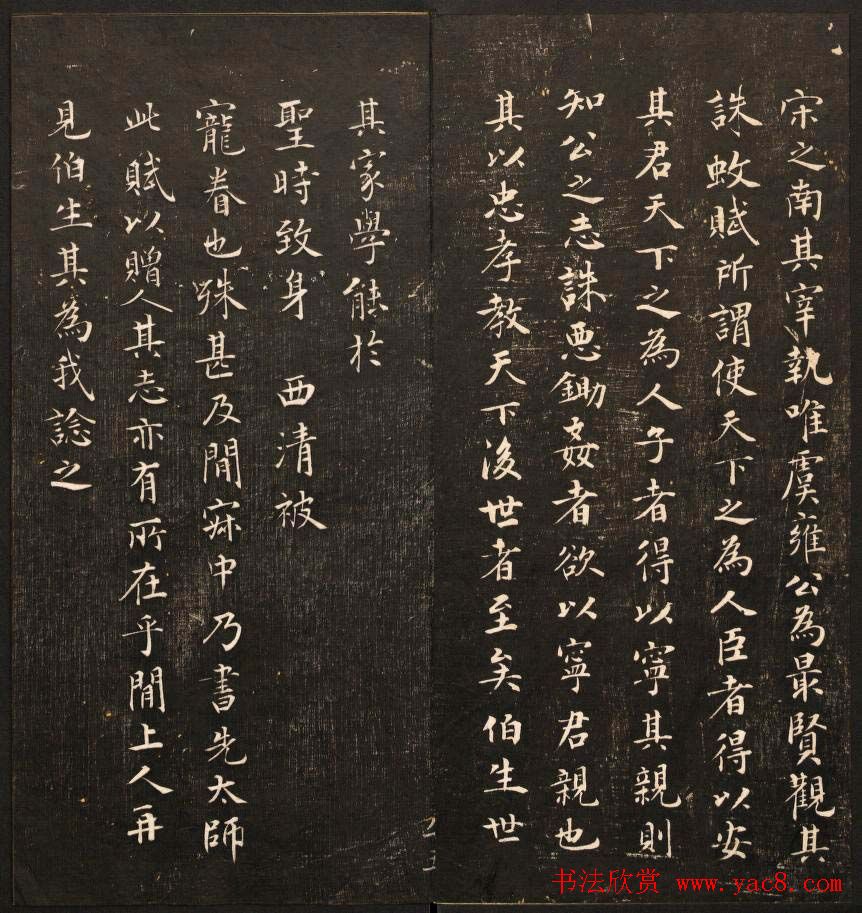 宋之南其宰執唯虞雍公為最賢觀其
誅蚊賦所謂使天下之為人臣者得以安
其君天下之為人子者得以寧其親則
知公之志誅惡鋤姦者欲以寧君親也
其以忠孝教天下後世者至矣伯生世
其家學能於
聖時致身 西清被
寵眷也殊甚及閒寐中乃書先太師
此賦以贈人其志亦有所在乎閒上人再
見伯生其為我諗之
书法欣赏 www.yac8.com